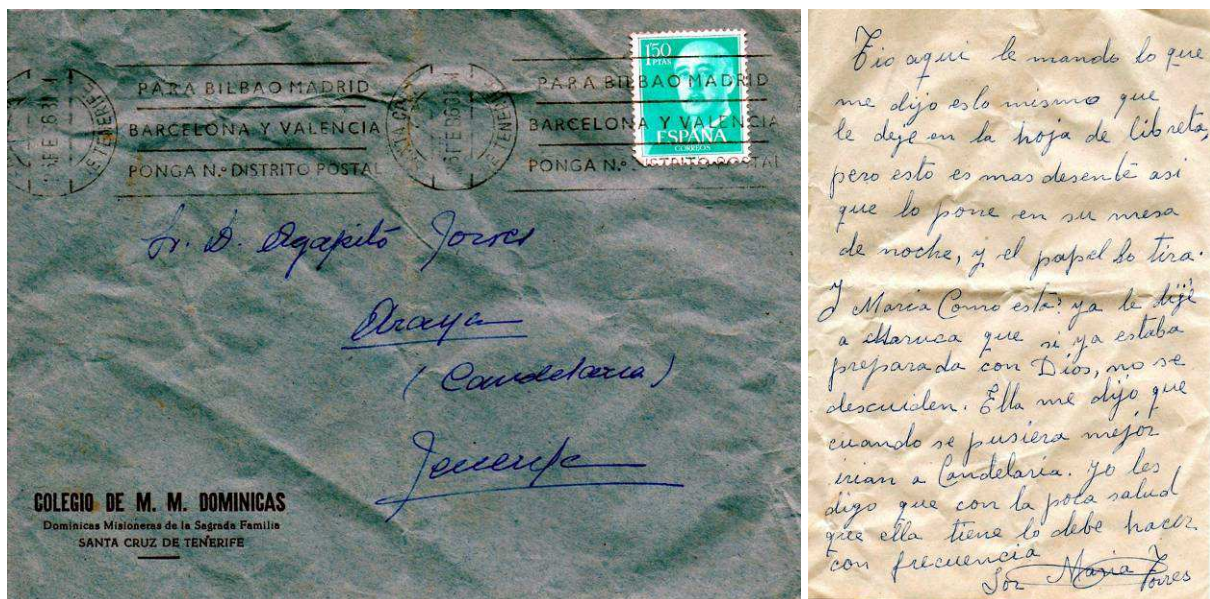 PARA BILBAO MADRID
BARCELONA Y VALENCIA
PONGA N.º DISTRITO POSTAL
FE
TENERIFE
SANTA CRUZ
FEB
TENERIFE
PARA BILBAO MADRID
BARCELONA Y VALENCIA
PONGA N.º DISTRITO POSTAL
1'50
PTAS
ESPAÑA
CORREOS
Sr. D. Agapito Torres
Araya
(Candelaria)
Tenerife
COLEGIO DE M. M. DOMINICAS
Dominicas Misioneras de la Sagrada Familia
SANTA CRUZ DE TENERIFE
Tio aqui le mando lo que
me dijo eslo mismo que
le deje en la hoja de libreta,
pero esto es mas desente asi
que lo pone en su mesa
de noche, y el papel lo tira.
Y Maria Como está? ya le dije
a Maruca que si ya estaba
preparada con Dios, no se
descuiden. Ella me dijo que
cuando se pusiera mejor
irian a Candelaria. yo les
digo que con la poca salud
que ella tiene lo debe hacer
con frecuencia
Sor Maria Torres